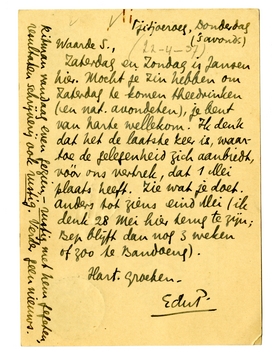 Tjitjoeroeg, Donderdag
('s avonds)
Waarde S., (22-4-37)
Zaterdag en Zondag is Jansen
hier. Mocht je zin hebben om
Zaterdag te komen theedrinken
(en nat. avondeten), je bent
van harte wellekom. Ik denk
dat het de laatste keer is, waar-
toe de gelegenheid zich aanbiedt,
vóór ons vertrek, dat 1 Mei
plaats heeft. Zie wat je doet.
anders tot ziens eind Mei (ik
denk 28 Mei hier terug te zijn;
Bep blijft dan nog 3 weken
of zoo te Bandoeng).
Hart. Groeten.
EduP.
Rikman vandaag even gezien – rustig met hem gepraat,
resultaten schrijnerij ook rustig. Verder geen nieuws.